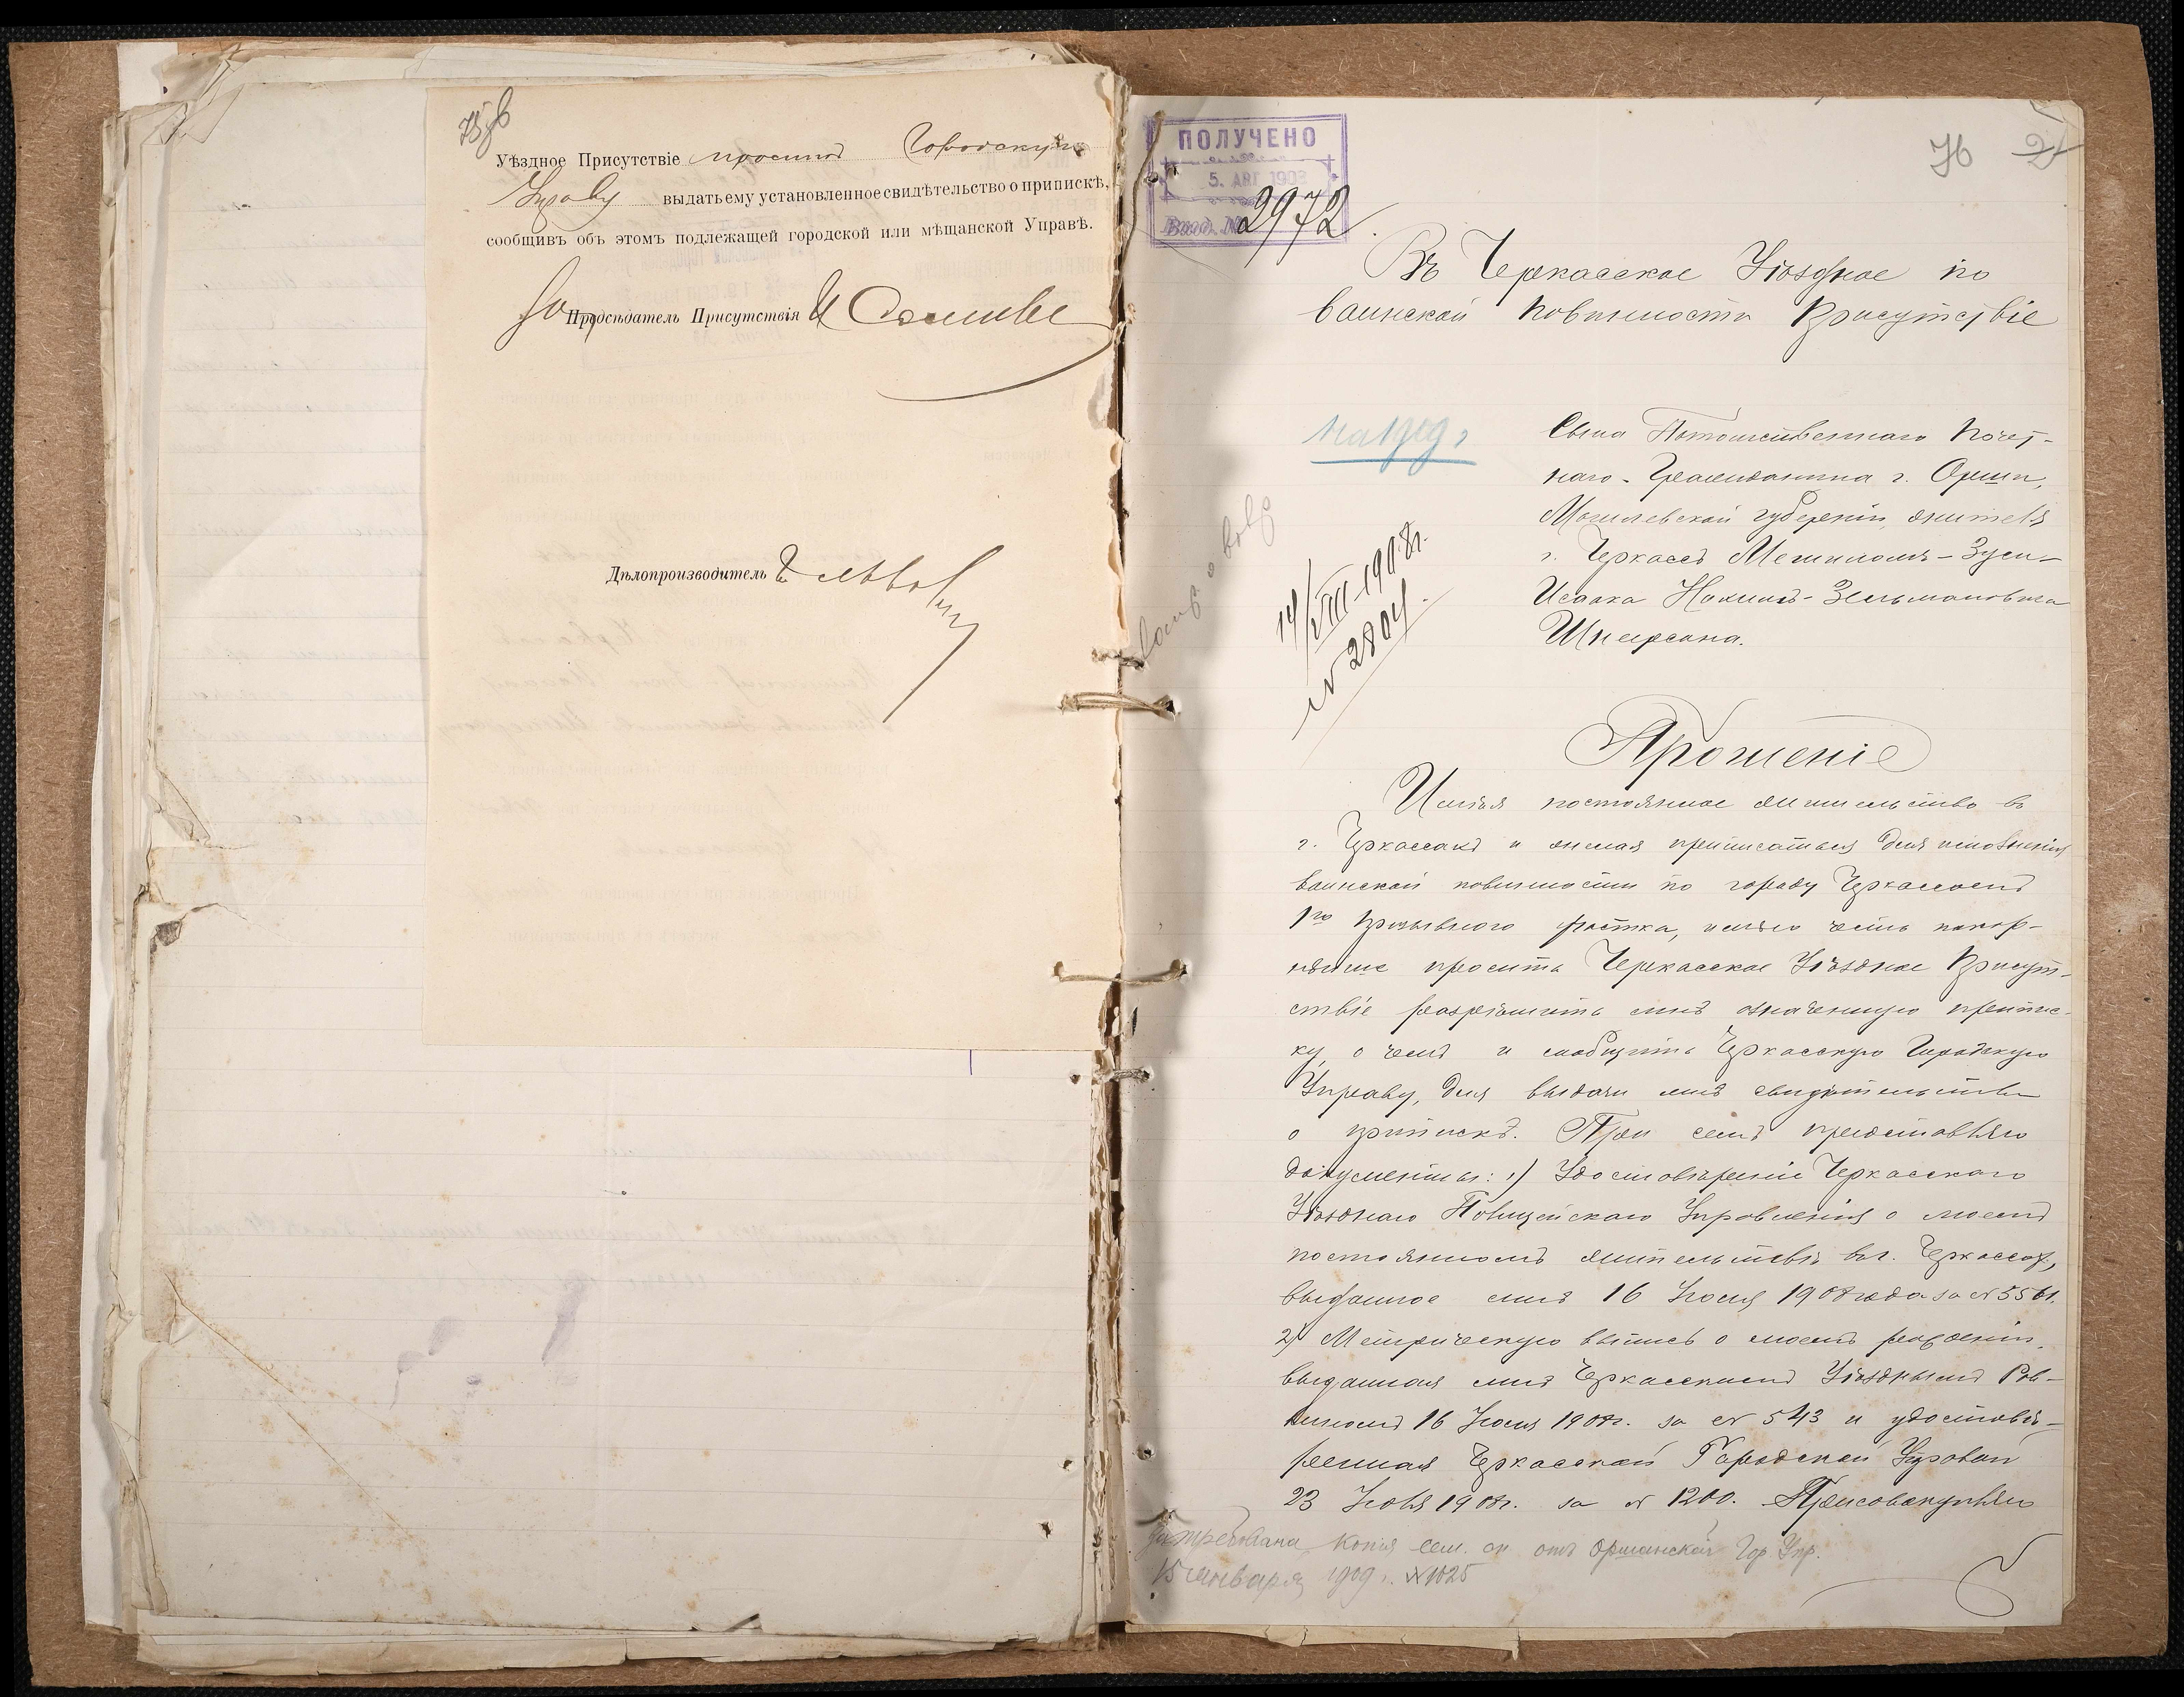 75 об
Уѣздное Присутствіе проситъ Городскую
Управу выдать ему установленное свидѣтельство о припискѣ,
сообщивъ объ этомъ подлежащей городской или мѣщанской Управѣ.
За Предсѣдатель Присутствія
Дѣлопроизводитель
ПОЛУЧЕНО
5. АВГ 1908
Вход. № 2972
76 2
Въ Черкасское Уѣздное по
воинской повинности Присутствіе
на 1909 г.
14/VIII 1908 г.
№ 2804
Сына Потомственнаго Почет-
наго Гражданина г. Орши,
Могилевской губерніи, жителя
г. Черкассъ Менихомъ-Зуси-
Исаака Нохимъ-Зельмановича
Шнеерсона.
Прошеніе
Имѣя постоянное жительство въ
г. Черкассахъ и желая приписаться для исполненія
воинской повинности по городу Черкассамъ
1го призывного участка, имѣю честь покор-
нѣйше просить Черкасское Уѣздное Присут-
ствіе разрѣшить мнѣ означенную припис-
ку, о чемъ и сообщить Черкасскую Городскую
Управу, для выдачи мнѣ свидѣтельства
о припискѣ. При семъ представляю
документы: 1) Удостовѣреніе Черкасскаго
Уѣзднаго Полицейскаго Управленія о моемъ
постоянномъ жительствѣ в г. Черкассах,
выданное мнѣ 16 Іюля 1908 года за № 5561.
2) Метрическую выпись о моемъ рожденіи,
выданная мнѣ Черкасскимъ Уѣзднымъ Рав-
виномъ 16 Іюля 1908 г. за № 543 и удостовѣ-
ренная Черкасской Городской Управой
23 Іюля 1908 г. за № 1200. Присовокупляю
Затребована копія сем. сп. отъ Оршанской Гор. Упр.
15 января 1909 г. № 1025